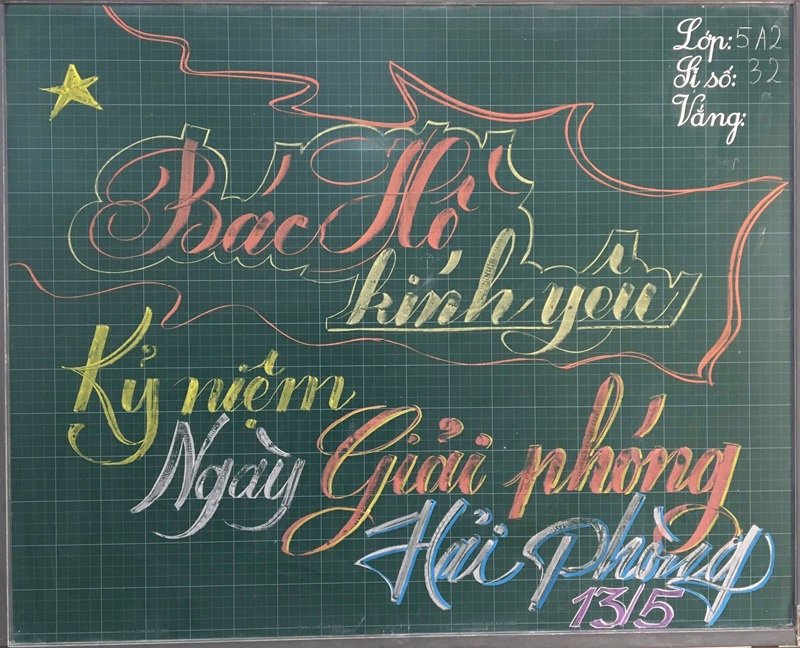 Lớp: 5A2
Sĩ số: 32
Vắng:
Bác Hồ
kính yêu
Kỷ niệm
Ngày Giải phóng
Hải Phòng
13/5